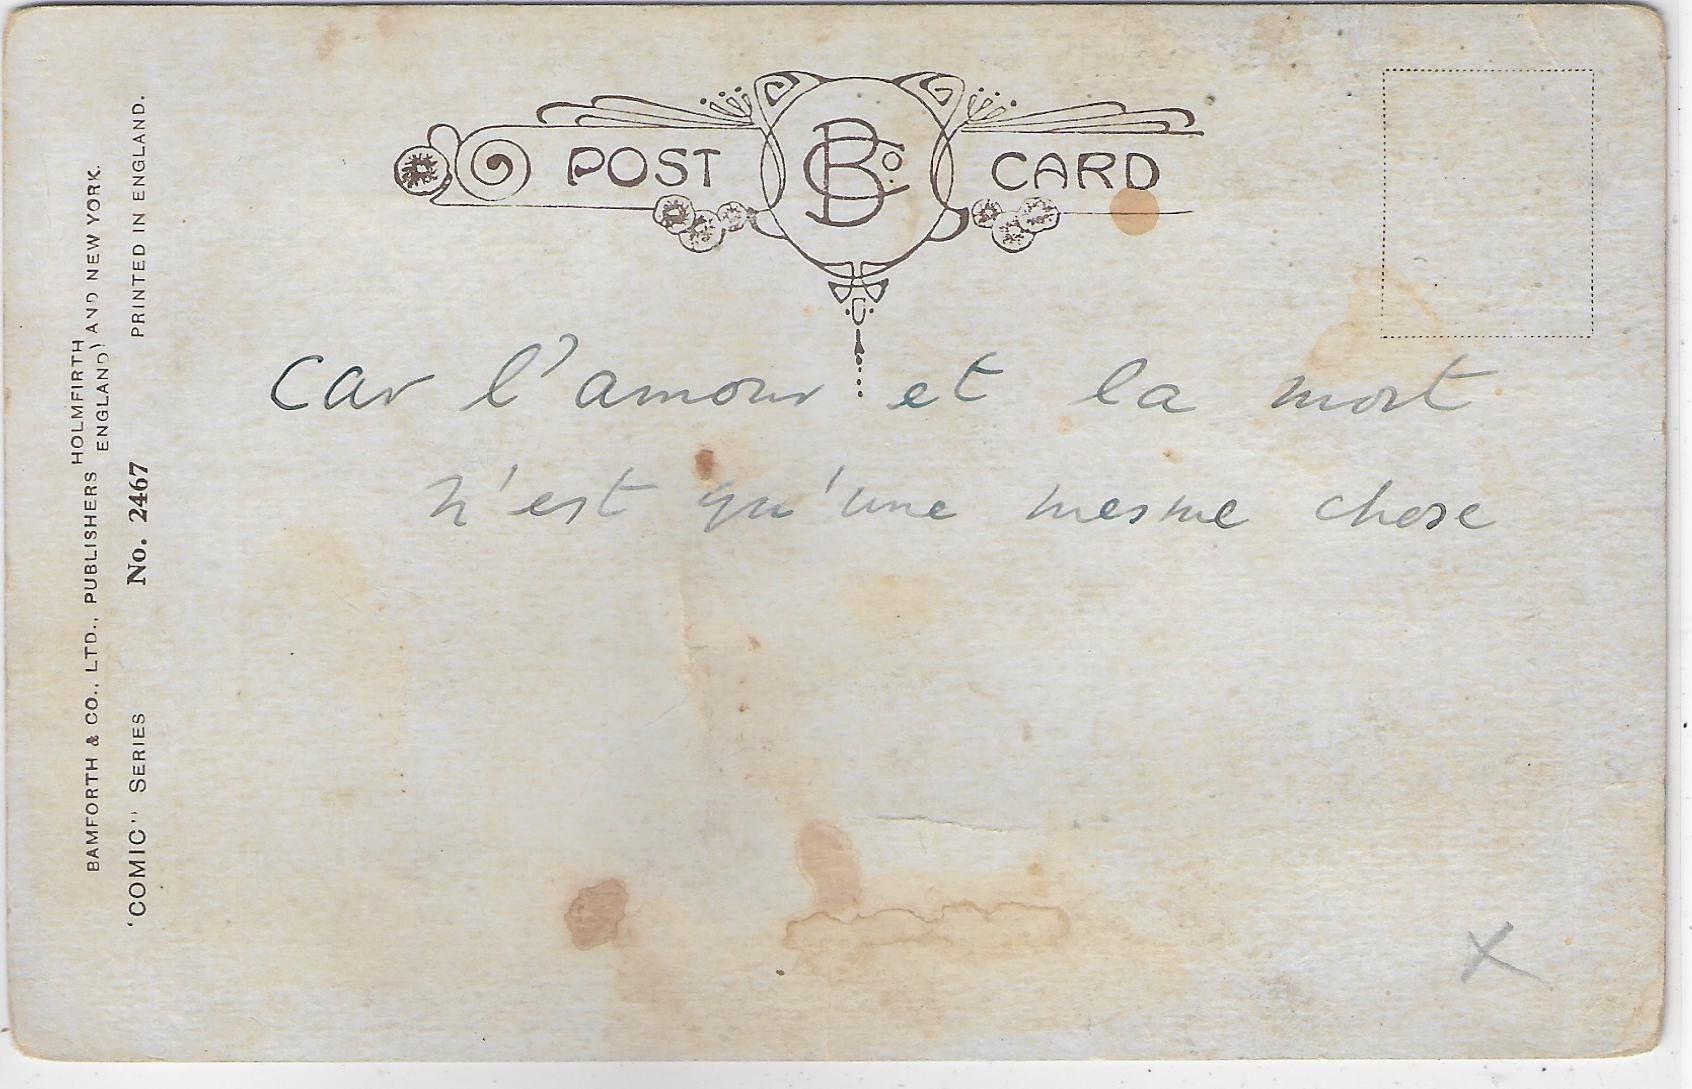 POST BCo. CARD
Car l'amour et la mort
n'est qu'une mesme chose
X
BAMFORTH & CO., LTD., PUBLISHERS HOLMFIRTH ENGLAND) AND NEW YORK.
'COMIC" SERIES No. 2467 PRINTED IN ENGLAND.